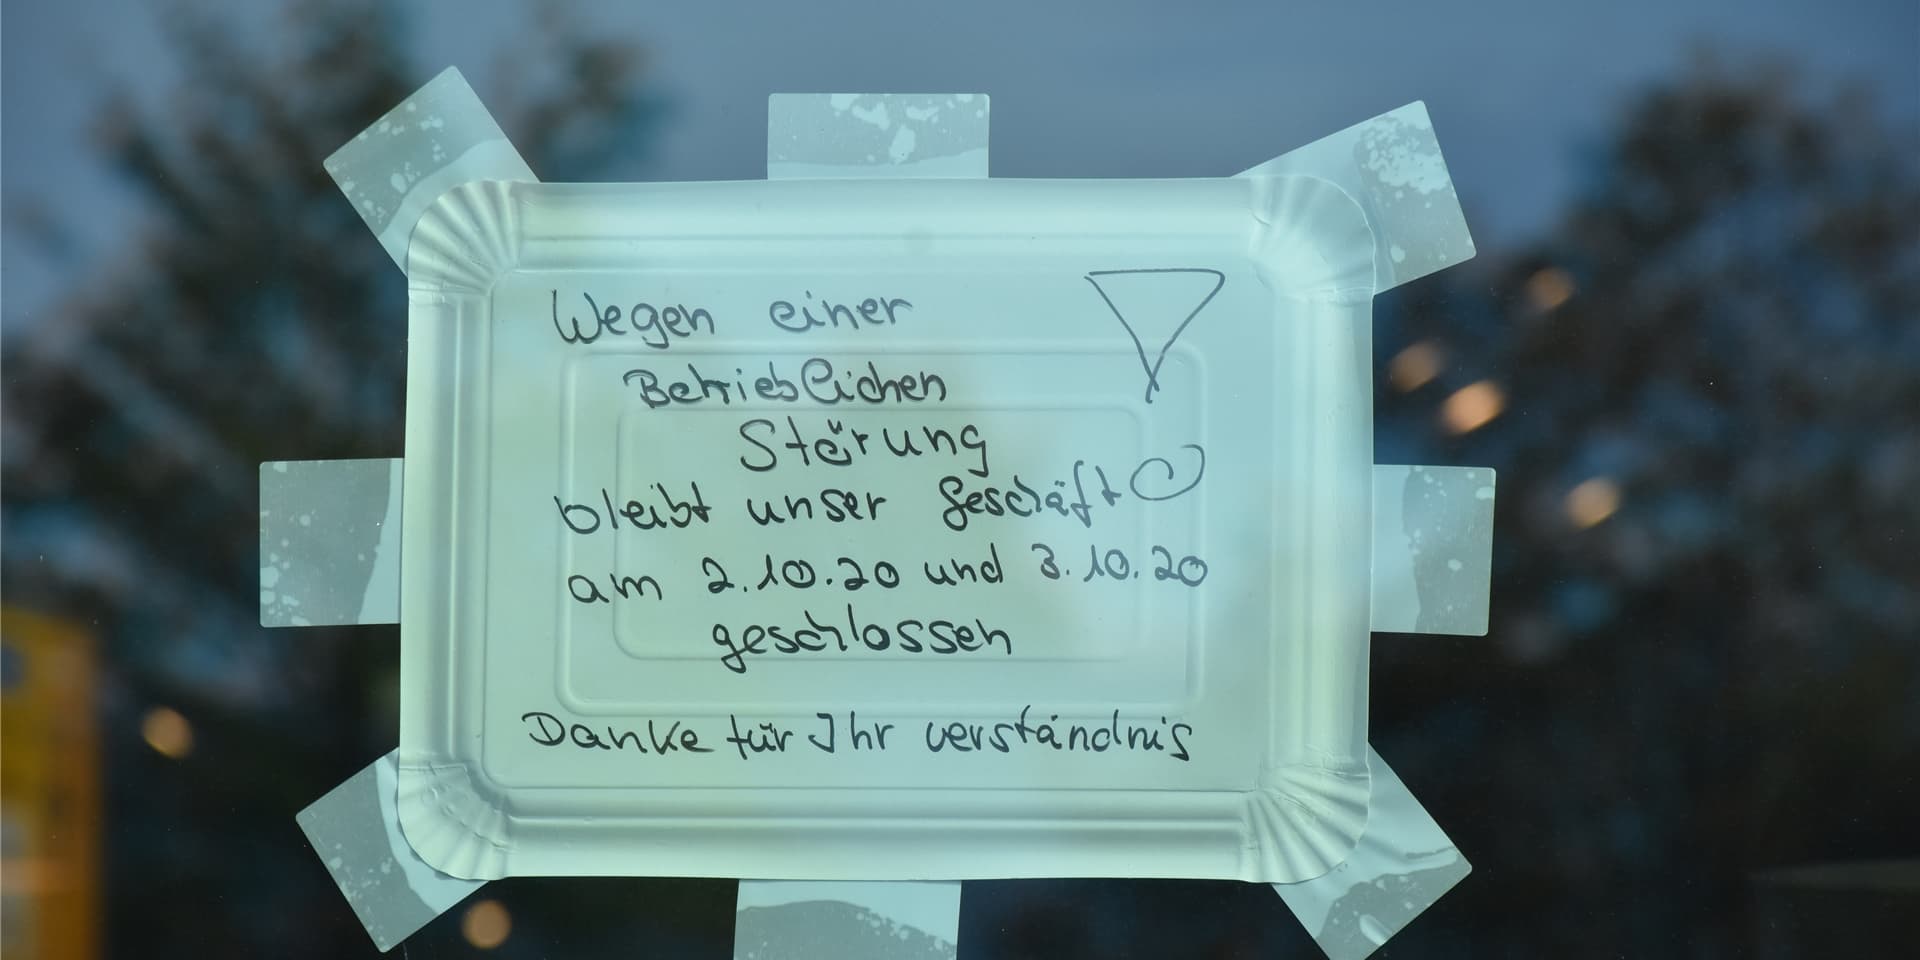 Wegen einer
Betrieblichen
Störung
bleibt unser Geschäft
am 2.10.20 und 3.10.20
geschlossen
Danke für Ihr verständnis